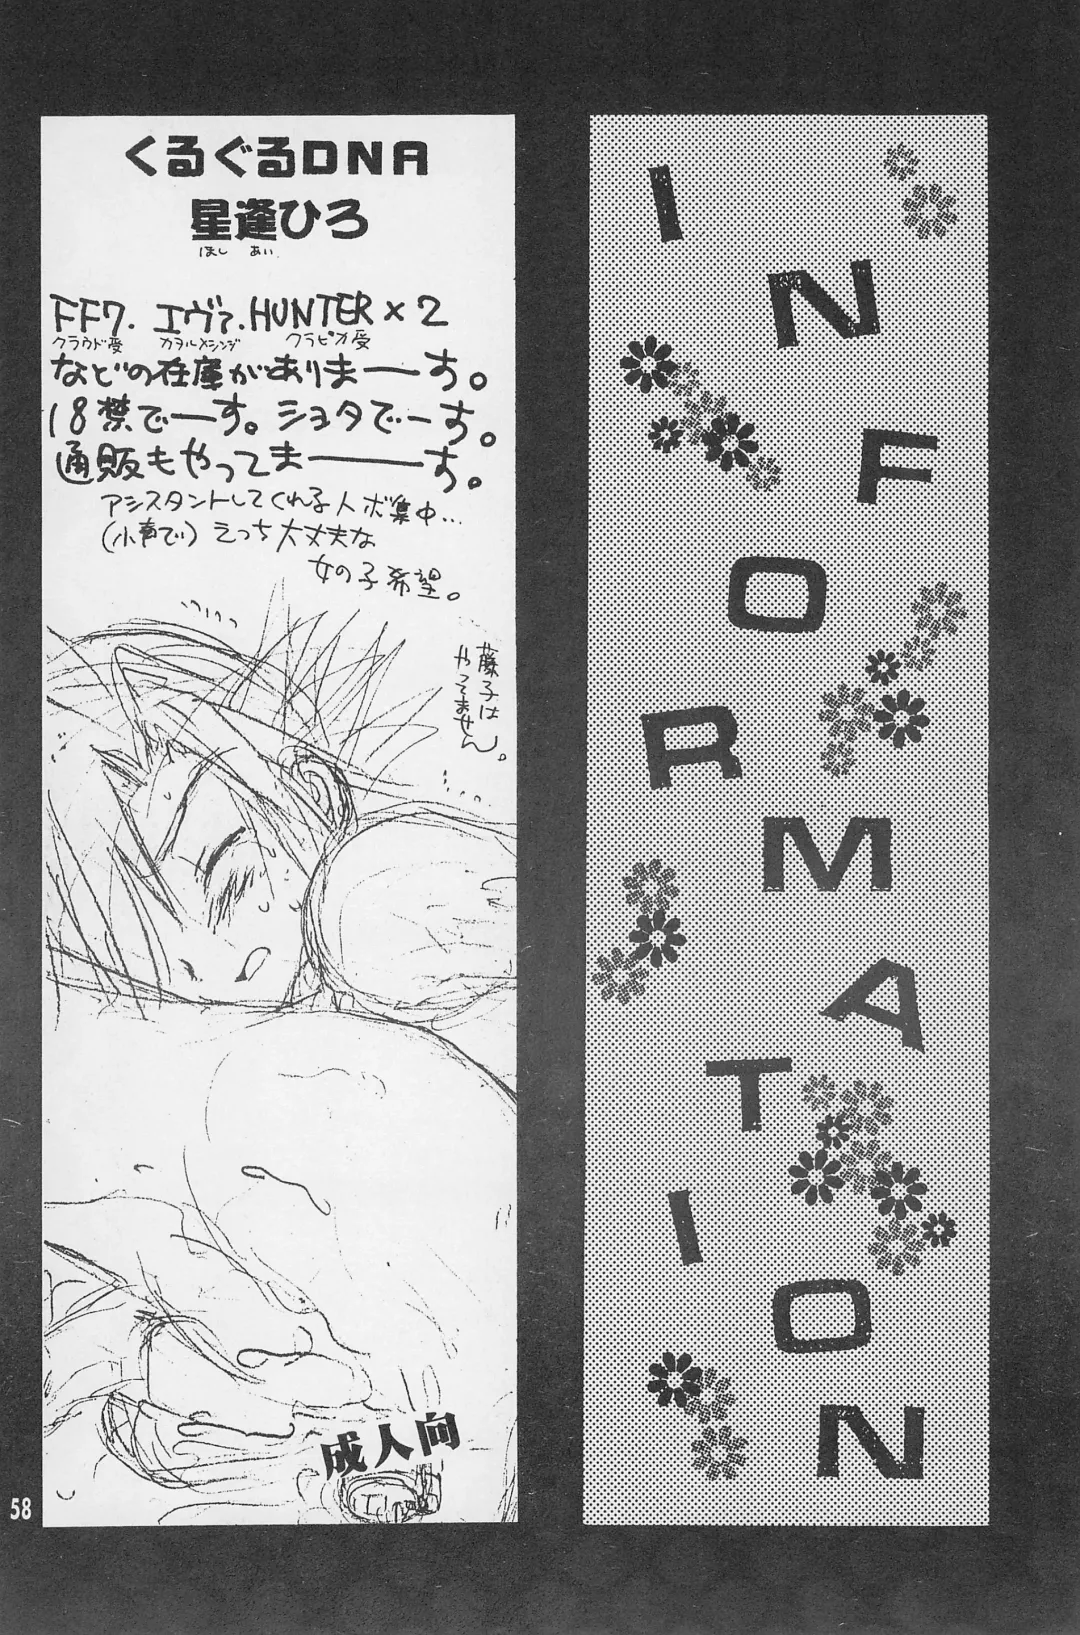 くるぐるDNA
星逢ひろ
ほし あい
FF7. エヴァ. HUNTER×2
クラウド受 カヲル×シンジ クラピカ受
などの在庫がありまーーす。
18禁でーす。ショタでーす。
通販もやってまーーーす。
アシスタントしてくれる人ボ集中…
(小声で)えっち大丈夫な
女の子希望。
藤子は
やってません。
成人向
58
I
N
F
O
R
M
A
T
I
O
N